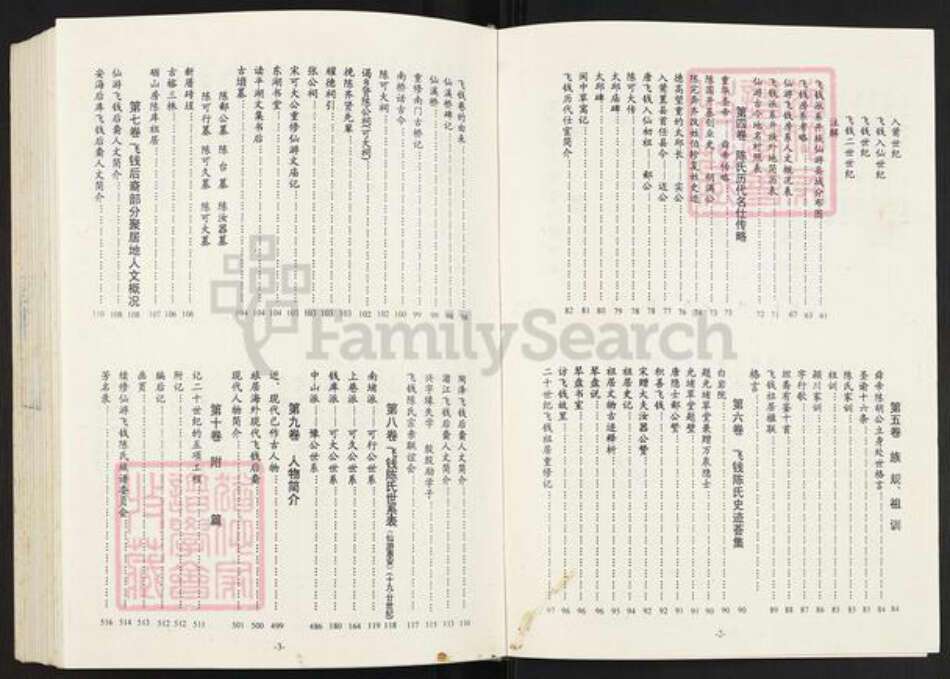 入莆世纪
飞钱入仙世纪
飞钱世纪
飞钱二世世纪
注解
飞钱派系开族仙游县域分布图 61
飞钱房系考略 63
仙游飞钱房系人文概况表 67
飞钱派系开族外地简历表 71
仙游古今地名对照表 72
第四卷 陈氏历代名仕传略
重华圣帝 舜帝传略 73
陈国开基创业史 胡满公 73
陈完奔齐改姓伯轸复姓史迹 74
德高望重的太邱长 实公 76
入莆置县首任县令 迈公 77
唐飞钱入仙初祖 邺公 78
陈可大传 78
太邱庙碑 79
太邱碑 80
闽中草寓记 81
飞钱历代仕宦简介 82
第五卷 族规、祖训
舜帝陈胡公立身处世格言 84
圣谕十六条 85
陈氏家训 83
祖训 85
颍川家训 86
字行歌 87
联斋有鉴十首 88
飞钱祖居楹联 89
格言
第六卷 飞钱陈氏史迹荟集
白岩院 90
题光坡草堂兼赠万泉隐士 90
光坡草堂题壁 91
唐隐士邺公赞 91
积善飞钱 92
宋赠大夫汝器公赞 92
祖居史记 94
祖居文物古迹释析 95
琴盘说 96
琴盘书室 96
访飞钱故里 96
二十世纪飞钱祖居重修记 97
-2-
飞钱巷的由来 98
仙溪桥碑记 98
仙溪桥 99
重修南门古桥记 99
南桥话古今 100
陈可大祠 102
谒乡贤陈公祠(可大祠) 102
挽陈齐贤先辈 103
耀德祠引 103
张公祠 103
宋可大公重修仙游文庙记 103
东湖书堂 104
读平湖文集书后 104
古墳墓 104
陈邺公墓 陈台墓 陈汝器墓
陈可行墓 陈可久墓 陈可大墓
新厝砖埕 106
古榕三株 106
砺山房陈库祖居 107
第七卷 飞钱后裔部分聚居地人文概况 108
仙游飞钱后裔人文简介 108
安海后库飞钱后裔人文简介 110
菏泽飞钱后裔人文简介 110
湛江飞钱后裔人文简介 113
兴学缘失学 殷殷励学子 115
飞钱陈氏宗亲联谊会 117
第八卷 飞钱陈氏世系表(仙游莆安)(十九-廿世纪) 118
南坡派 可行公世系 119
上巷派 可久公世系 164
钱库派 可大公世系 180
中山派 豫公世系 486
第九卷 人物简介
近、现代已作古人物 499
旅居海外现代飞钱后裔 500
现代人物简介 501
第十卷 附 篇
记二十世纪的五项工程 511
附记 512
编后记 512
画页 513
续修仙游飞钱陈氏族谱委员会 514
芳名录 516
-3-
FamilySearch